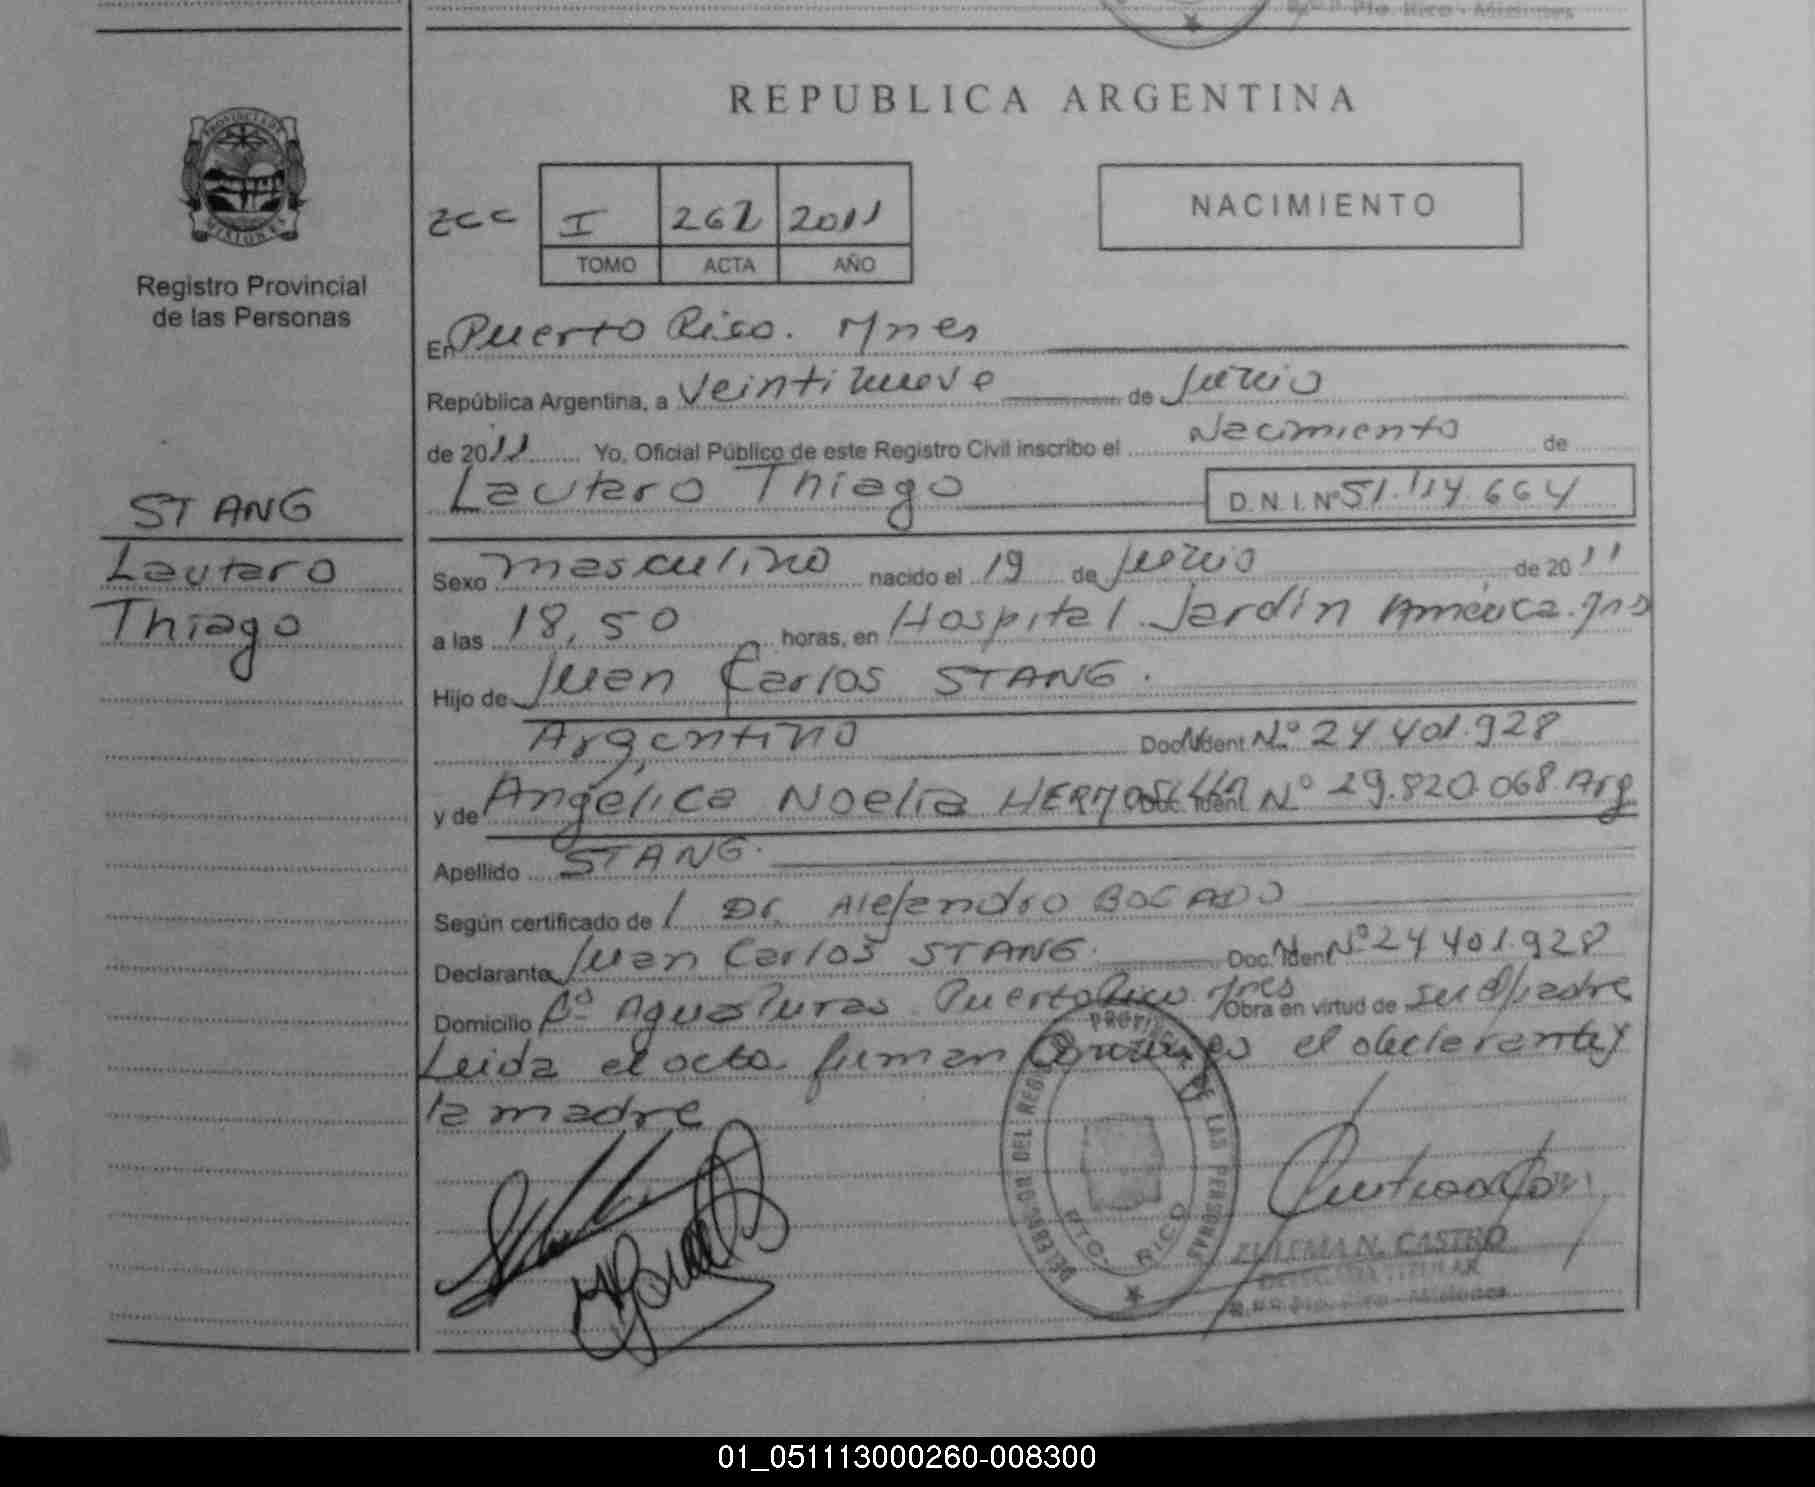 REPUBLICA ARGENTINA
Registro Provincial
de las Personas
I 262 2011
TOMO ACTA AÑO
NACIMIENTO
En Puerto Rico. Mnes
República Argentina, a Veintinueve de Junio
de 2011 Yo, Oficial Público de este Registro Civil inscribo el Nacimiento de
Lautaro Thiago D.N.I. Nº 51.114.664
STANG
Lautaro
Thiago
Sexo masculino nacido el 19 de Junio de 2011
a las 18,50 horas, en Hospital Jardín América. Mns
Hijo de Juan Carlos STANG.
Argentino Doc. Ident Nº 24 401.928
y de Angélica Noelia HERMOSILLA Doc. Ident. Nº 29.820.068 Arg
Apellido STANG.
Según certificado de Dr. Alejandro BOCADO
Declarante Juan Carlos STANG. Doc. Ident Nº 24 401.928
Domicilio Bº Aguas Puras Puerto Rico Mnes Obra en virtud de ser padre
Leida el acta firman el declarante y
la madre
DELEGACION DEL REGISTRO PROVINCIAL DE LAS PERSONAS
PTO. RICO
ZULEMA N. CASTRO
DELEGADA TITULAR
Pto. Rico - Misiones
01_051113000260-008300